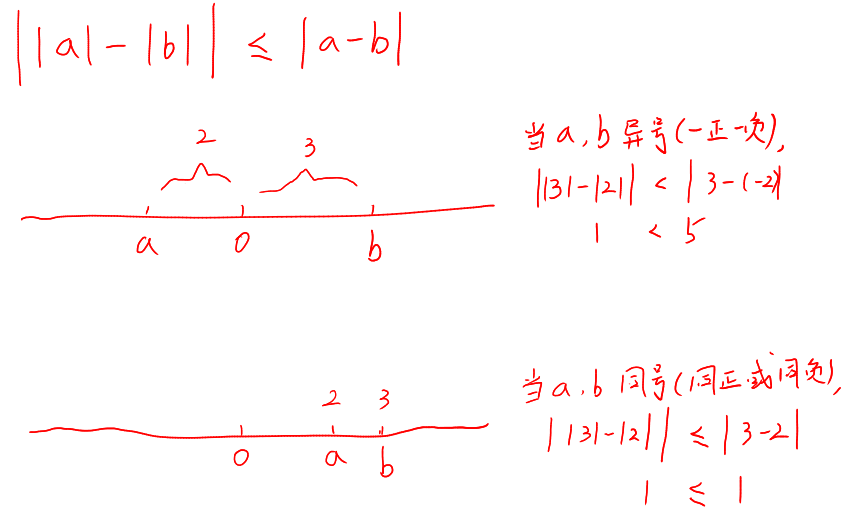 ||a|-|b|| ≤ |a-b|
2 3
a 0 b
当a,b异号(一正一负),
||3|-|2|| < |3-(-2)|
1 < 5
2 3
0 a b
当a,b同号(同正或同负),
||3|-|2|| ≤ |3-2|
1 ≤ 1